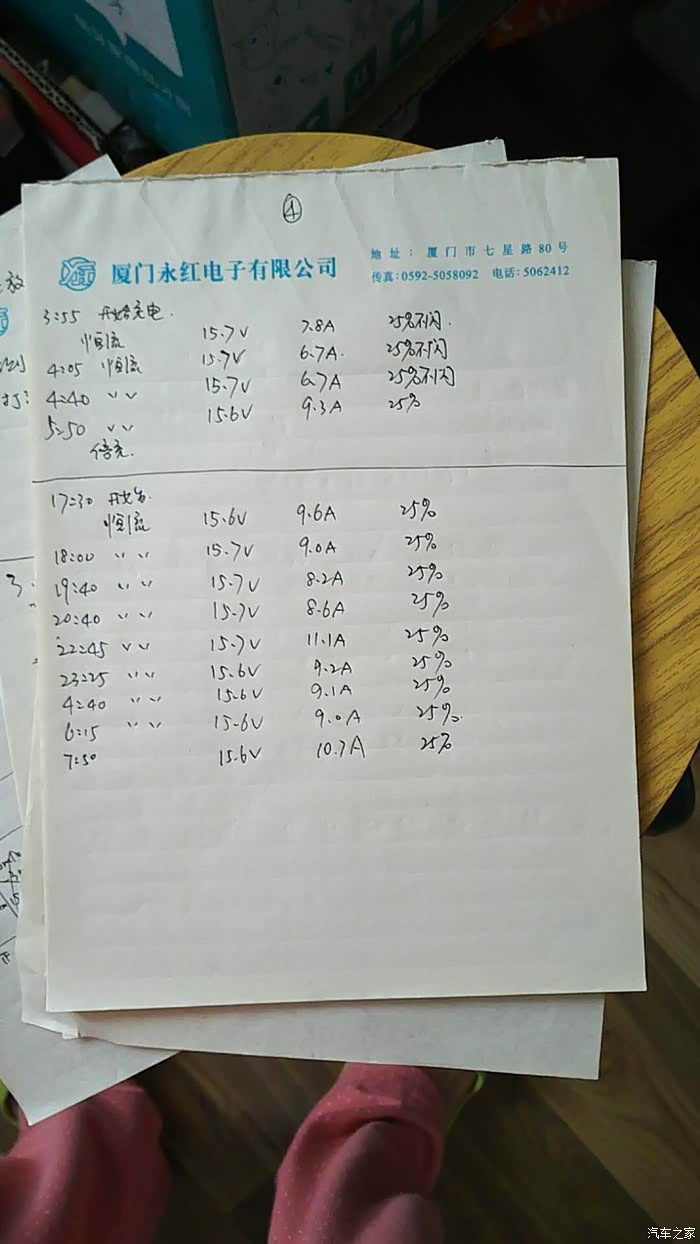 ④
厦门永红电子有限公司
地址：厦门市七星路80号
传真:0592-5058092 电话:5062412
3:55 开始充电.
恒流 15.7V 7.8A 25%不闪.
4:05 恒流 15.7V 6.7A. 25%不闪
4:40 〃 15.7V 6.7A 25%不闪
5:50 〃 15.6V 9.3A 25%
停充.
17:30 开始.
恒流 15.6V 9.6A 25%
18:00 〃 15.7V 9.0A 25%
19:40 〃 15.7V 8.2A 25%
20:40 〃 15.7V 8.6A 25%
22:45 〃 15.7V 11.1A 25%
23:25 〃 15.6V 9.2A 25%
4:40 〃 15.6V 9.1A 25%
6:15 〃 15.6V 9.0A 25%.
7:50 15.6V 10.7A 25%
汽车之家